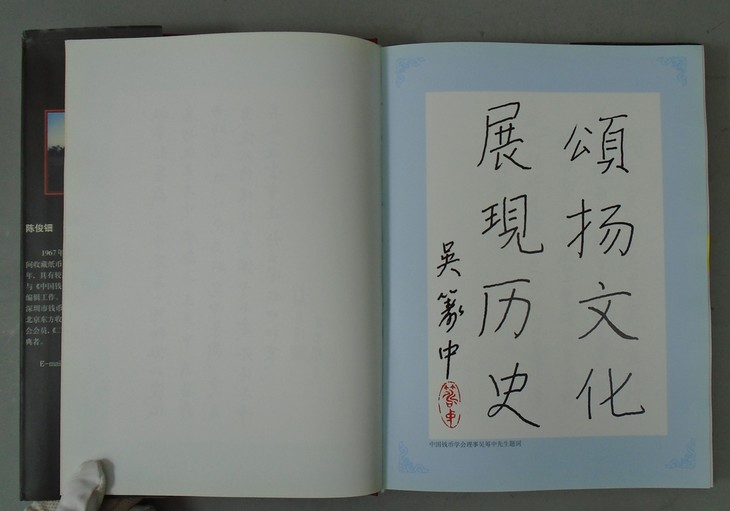 陈俊钿
1967年
问收藏纸币
年，具有较
与《中国钱
编辑工作。
深圳市钱币
北京东方收
会会员，《
典者。
E-mail
頌扬文化
展現历史
吳筹中
筹中
中国钱币学会理事吴筹中先生题词